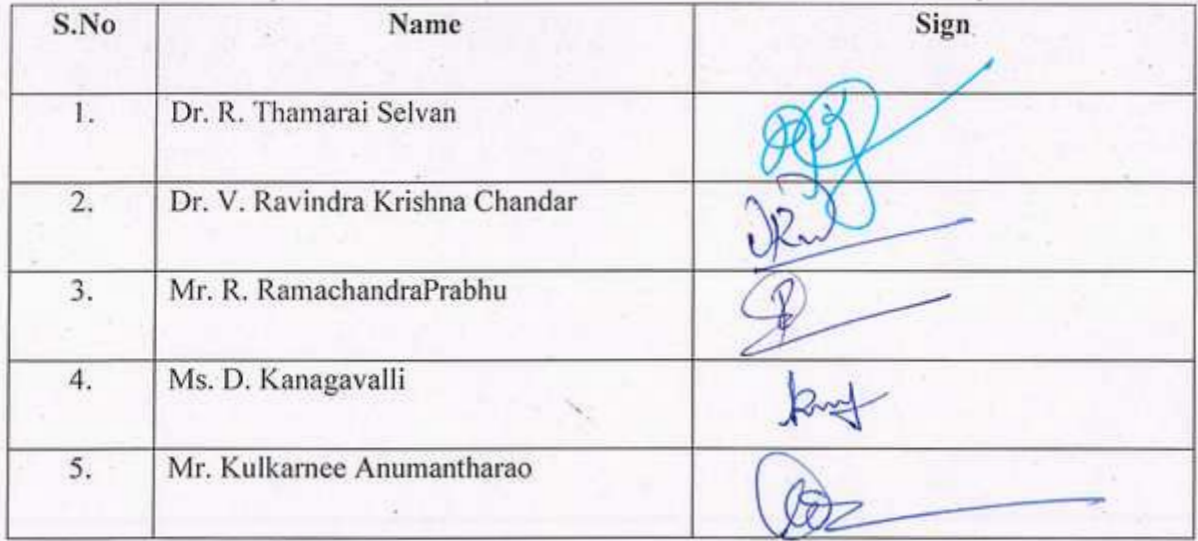 S.No Name Sign
1. Dr. R. Thamarai Selvan
2. Dr. V. Ravindra Krishna Chandar
3. Mr. R. RamachandraPrabhu
4. Ms. D. Kanagavalli
5. Mr. Kulkarnee Anumantharao